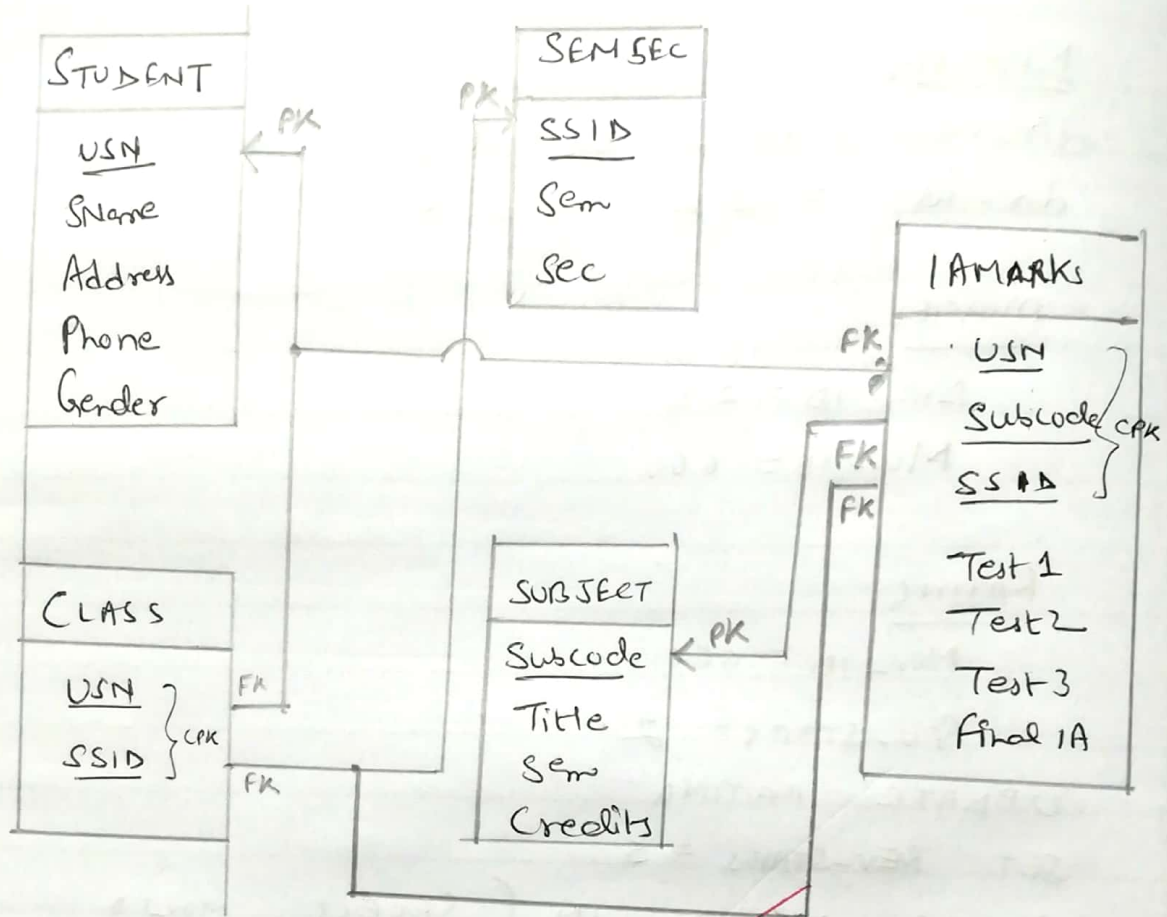 STUDENT
USN
SName
Address
Phone
Gender
PK
SEMSEC
SSID
Sem
Sec
PK
IAMARKS
USN
Subcode
SSID
CPK
Test 1
Test 2
Test 3
Final IA
FK
FK
FK
CLASS
USN
SSID
CPK
FK
FK
SUBJECT
Subcode
Title
Sem
Credits
PK